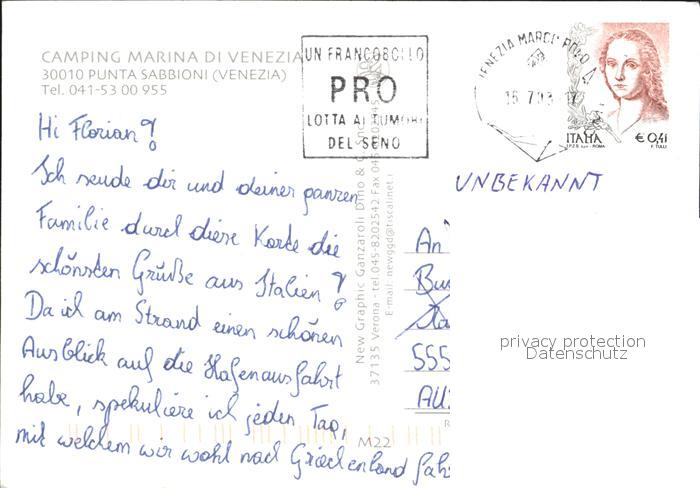 CAMPING MARINA DI VENEZIA
30010 PUNTA SABBIONI (VENEZIA)
Tel. 041-53 00 955
UN FRANCOBOLLO
PRO
LOTTA AI TUMORI
DEL SENO
VENEZIA MARCO POLO
ITALIA
€ 0,41
I.P.Z.S. S.p.A. - ROMA
F. TULLI
Hi Florian!
Ich sende dir und deiner ganzen
Familie durch diese Karte die
schönsten Grüße aus Italien!
Da ich am Strand einen schönen
Ausblick auf die Hafenausfahrt
habe, spekuliere ich jeden Tag,
mit welchem wir wohl nach Griechenland fah
New Graphic Ganzaroli Dino & C. snc
37135 Verona - tel. 045-8202542 Fax 045
E-mail: newggd@tiscalinet.i
M22
UNBEKANNT
An
555
privacy protection
Datenschutz